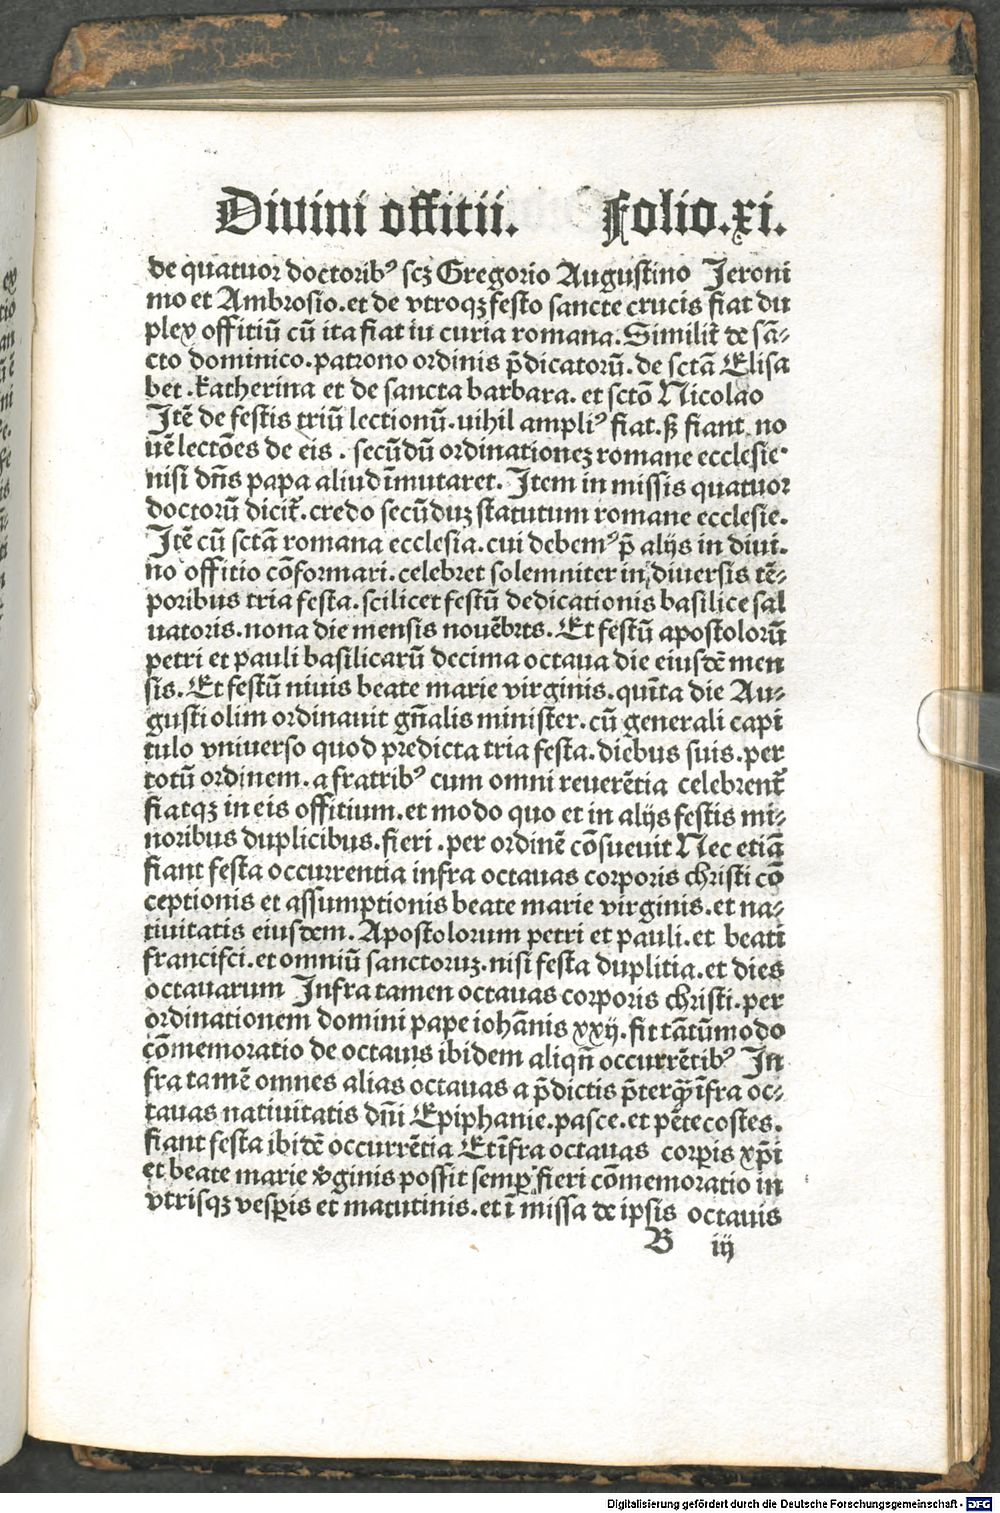 Diuini offitii. Folio.xi.
de quatuor doctorib⁹ scꝫ Gregorio Augustino Jeroni
mo et Ambrosio.et de vtroqꝫ festo sancte crucis fiat du
plex offitiū cū ita fiat in curia romana.Similit̄ de sā⸗
cto dominico.patrono ordinis p̄dicatorū.de sctā Elisa
bet.katherina et de sancta barbara.et sctō Nicolao
Jtē de festis triū lectionū.nihil ampli⁹ fiat.ꝭ fiant no
uē lectōes de eis. secūdū ordinationeꝫ romane ecclesie
nisi dn̄s papa aliud īmutaret. Jtem in missis quatuor
doctorū dicit̄.credo secūduꝫ statutum romane ecclesie.
Jtē cū sctā romana ecclesia.cui debem⁹ p̄ alijs in diui.
no offitio cōformari.celebret solemniter in diuersis tē⸗
poribus tria festa.scilicet festū dedicationis basilice sal
uatoris.nona die mensis nouēbrıs.Et festū apostolorū
petri et pauli basilicarū decima octaua die eiusdē men
sis.Et festū niuis beate marie virginis.quīta die Au⸗
gusti olim ordinauit gn̄alis minister.cū generali capi
tulo vniuerso quod predicta tria festa.diebus suis.per
totū ordinem.a fratrib⁹ cum omni reuerētia celebrent̄
fiatqꝫ in eis offitium.et modo quo et in alijs festis mi⸗
noribus duplicibus.fieri.per ordinē cōsueuit Nec etiā
fiant festa occurrentia infra octauas corporis christi cō
ceptionis et assumptionis beate marie virginis.et na⸗
tiuitatis eiusdem.Apostolorum petri et pauli.et beati
francisci.et omniū sanctoruꝫ.nisi festa duplitia.et dies
octauarum Jnfra tamen octauas corporis christi.per
ordinationem domini pape iohānis xxij.fit tātūmodo
cōmemoratio de octauis ibidem aliqn̄ occurrētib⁹ Jn
fra tamē omnes alias octauas a p̄dictis p̄terqꝫ īfra oc⸗
tauas natiuitatis dn̄i Epiphanie.pasce.et pētecostes.
fiant festa ibidē occurrētia Et īfra octauas corꝑis xp̄i
et beate marie v̓ginis possit semꝑ fieri cōmemoratio in
vtrisqꝫ vesꝑis et matutinis.et ī missa de ipsis octauis
B iij
Digitalisierung gefördert durch die Deutsche Forschungsgemeinschaft - DFG